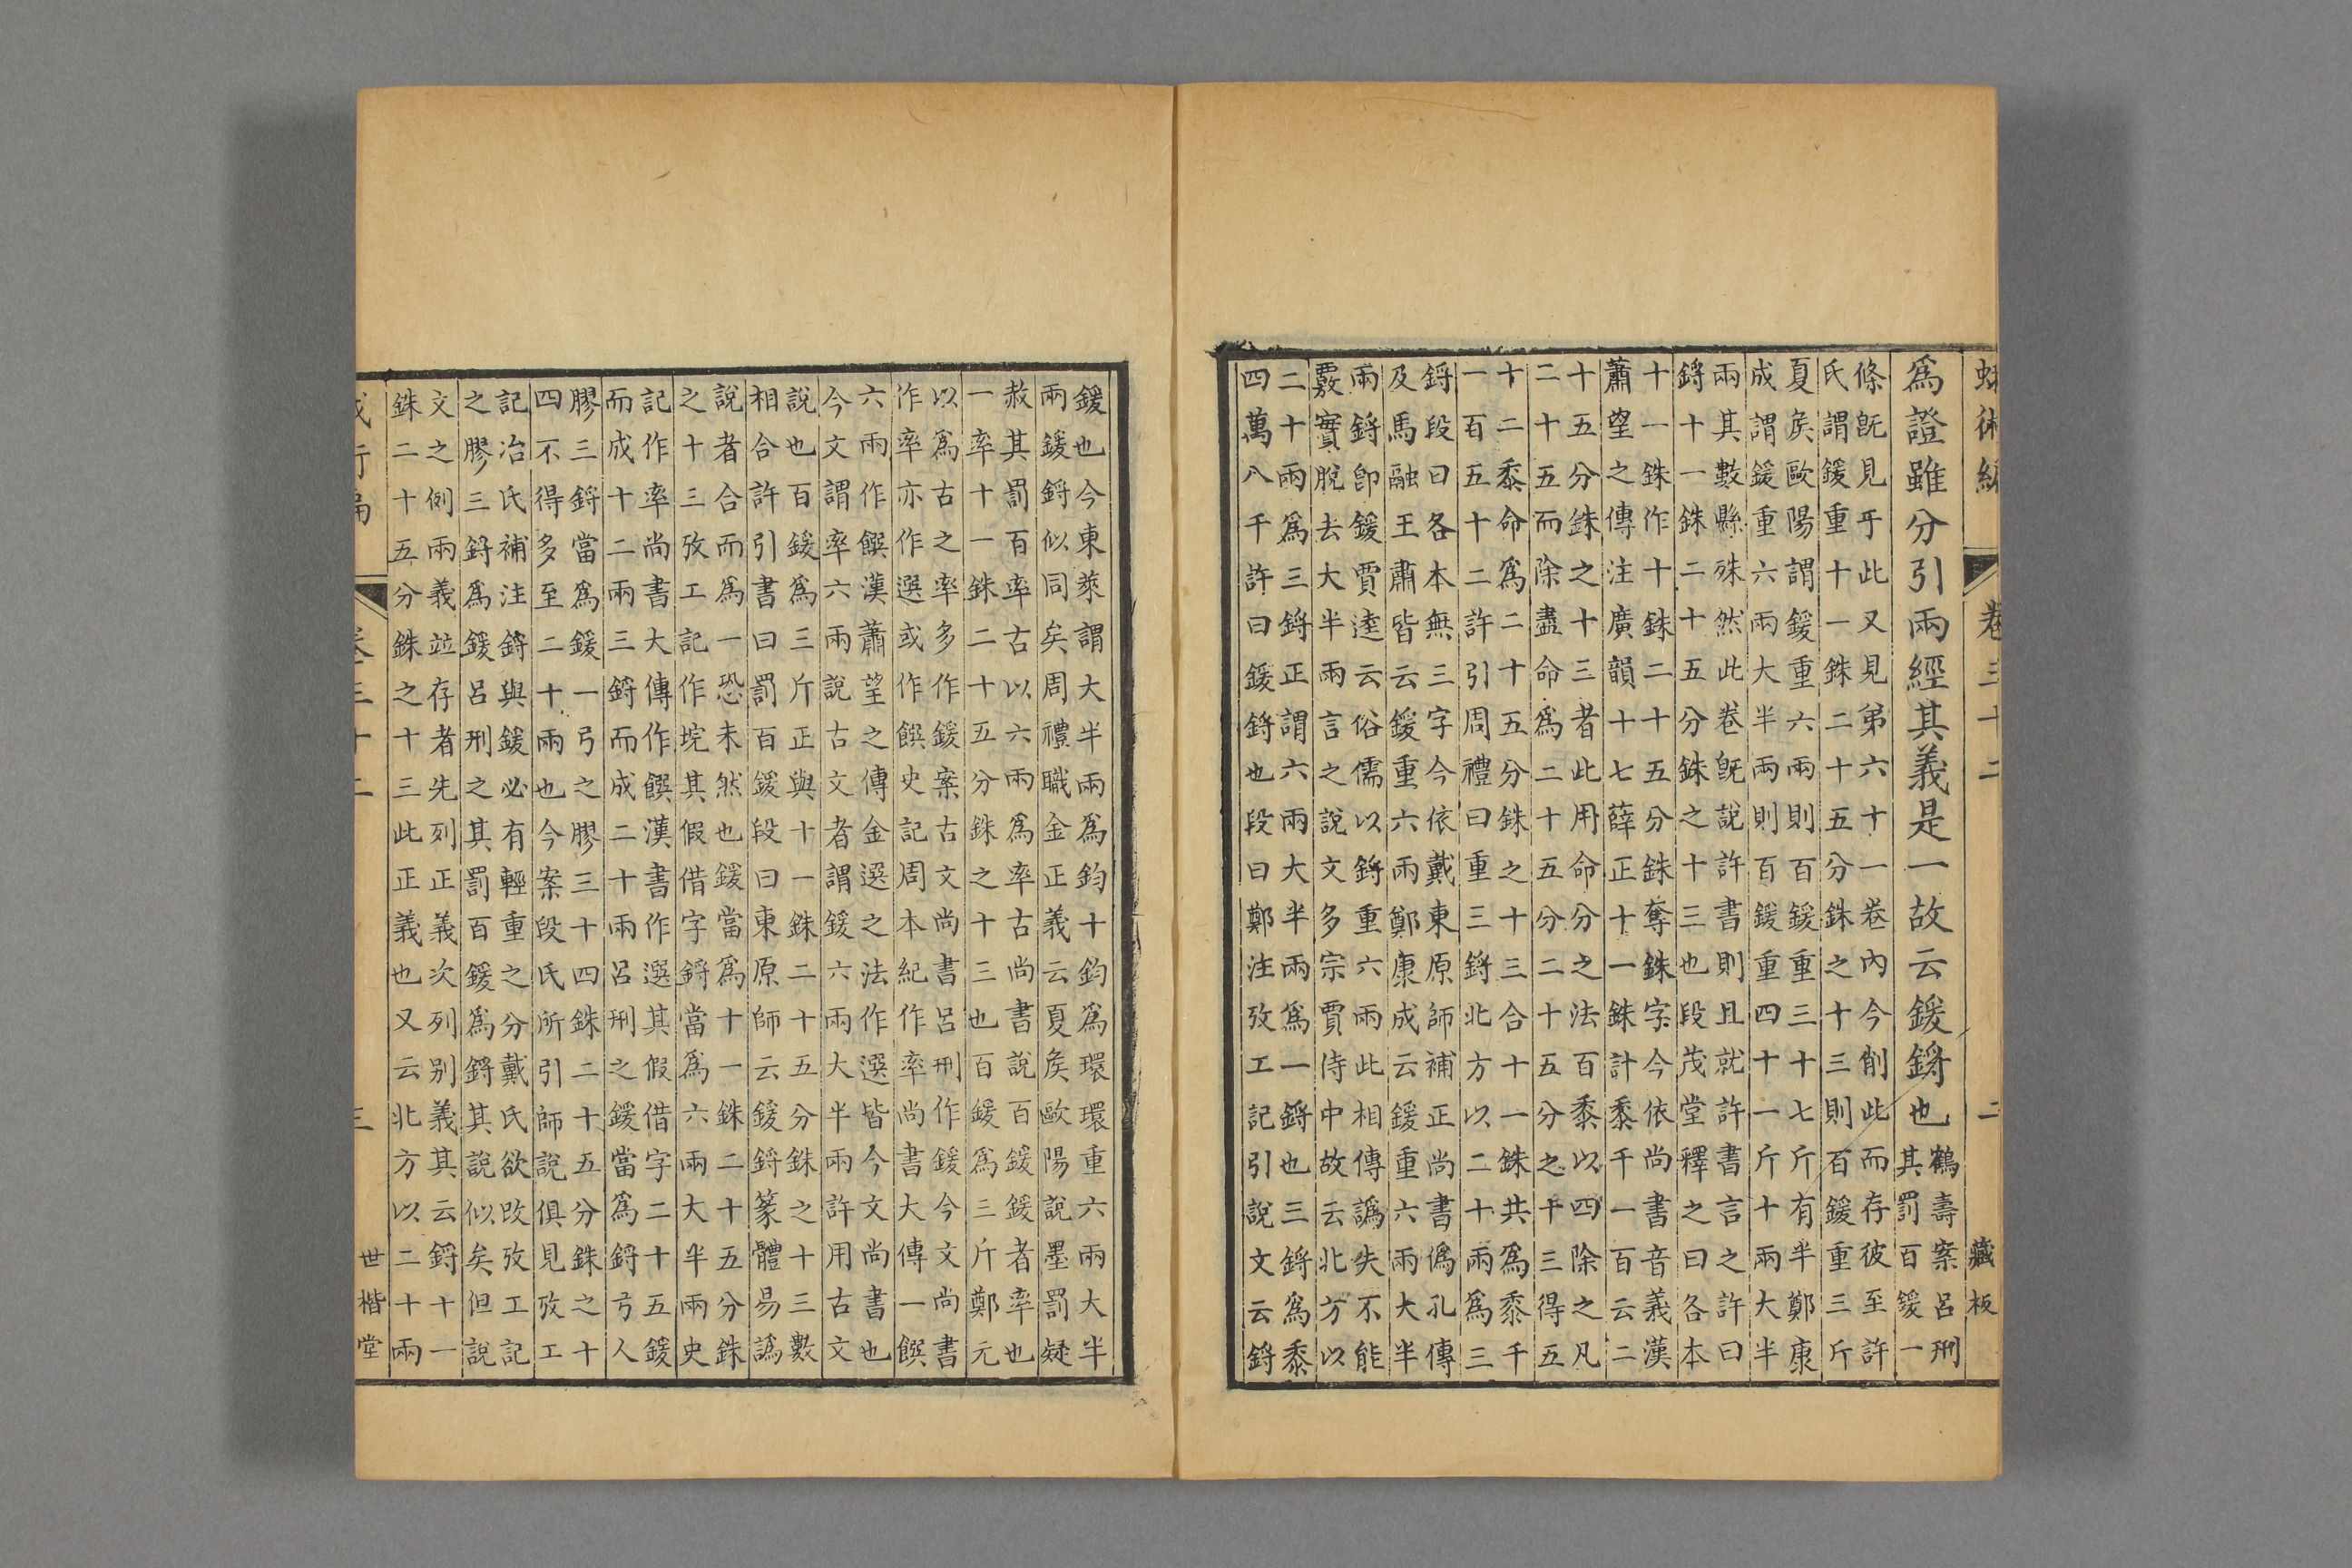 術編 卷三十二 二 藏板
爲證雖分引兩經其義是一故云鍰鋝也
鶴壽案呂刑
其罰百鍰一
條旣見于此又見第六十一卷內今削此而存彼至許
氏謂鍰重十一銖二十五分銖之十三則百鍰重三斤
夏矦歐陽謂鍰重六兩則百鍰重三十七斤有半鄭康
成謂鍰重六兩大半兩則百鍰重四十一斤十兩大半
兩其數縣殊然此卷旣說許書則且就許書言之許曰
鋝十一銖二十五分銖之十三也段茂堂釋之曰各本
十一銖作十銖二十五分銖奪銖字今依尚書音義漢
蕭望之傳注廣韻十七薛正十一銖計黍千一百云二
十五分銖之十三者此用命分之法百黍以四除之凡
二十五而除盡命爲二十五分二十五分之十三得五
十二黍命爲二十五分銖之十三合十一銖共爲黍千
一百五十二許引周禮曰重三鋝北方以二十兩爲三
鋝段曰各本無三字今依戴東原師補正尚書僞孔傳
及馬融王肅皆云鍰重六兩鄭康成云鍰重六兩大半
兩鋝卽鍰賈逵云俗儒以鋝重六兩此相傳譌失不能
覈實脫去大半兩言之說文多宗賈侍中故云北方以
二十兩爲三鋝正謂六兩大半兩爲一鋝也三鋝爲黍
四萬八千許曰鍰鋝也段曰鄭注攷工記引說文云鋝
鍰也今東萊謂大半兩爲鈞十鈞爲環環重六兩大半
兩鍰鋝似同矣周禮職金正義云夏矦歐陽說墨罰疑
赦其罰百率古以六兩爲率古尚書說百鍰鍰者率也
一率十一銖二十五分銖之十三也百鍰爲三斤鄭元
以爲古之率多作鍰案古文尚書呂刑作鍰今文尚書
作率亦作選或作饌史記周本紀作率尚書大傳一饌
六兩作饌漢蕭望之傳金選之法作選皆今文尚書也
今文謂率六兩說古文者謂鍰六兩大半兩許用古文
說也百鍰爲三斤正與十一銖二十五分銖之十三數
相合許引書曰罰百鍰段曰東原師云鍰鋝篆體易譌
說者合而爲一恐未然也鍰當爲十一銖二十五分銖
之十三攷工記作垸其假借字鋝當爲六兩大半兩史
記作率尚書大傳作饌漢書作選其假借字二十五鍰
而成十二兩三鋝而成二十兩呂刑之鍰當爲鋝弓人
膠三鋝當爲鍰一弓之膠三十四銖二十五分銖之十
四不得多至二十兩也今案段氏所引師說俱見攷工
記冶氏補注鋝與鍰必有輕重之分戴氏欲改攷工記
之膠三鋝爲鍰呂刑之其罰百鍰爲鋝其說似矣但說
文之例兩義竝存者先列正義次列别義其云鋝十一
銖二十五分銖之十三此正義也又云北方以二十兩
世楷堂